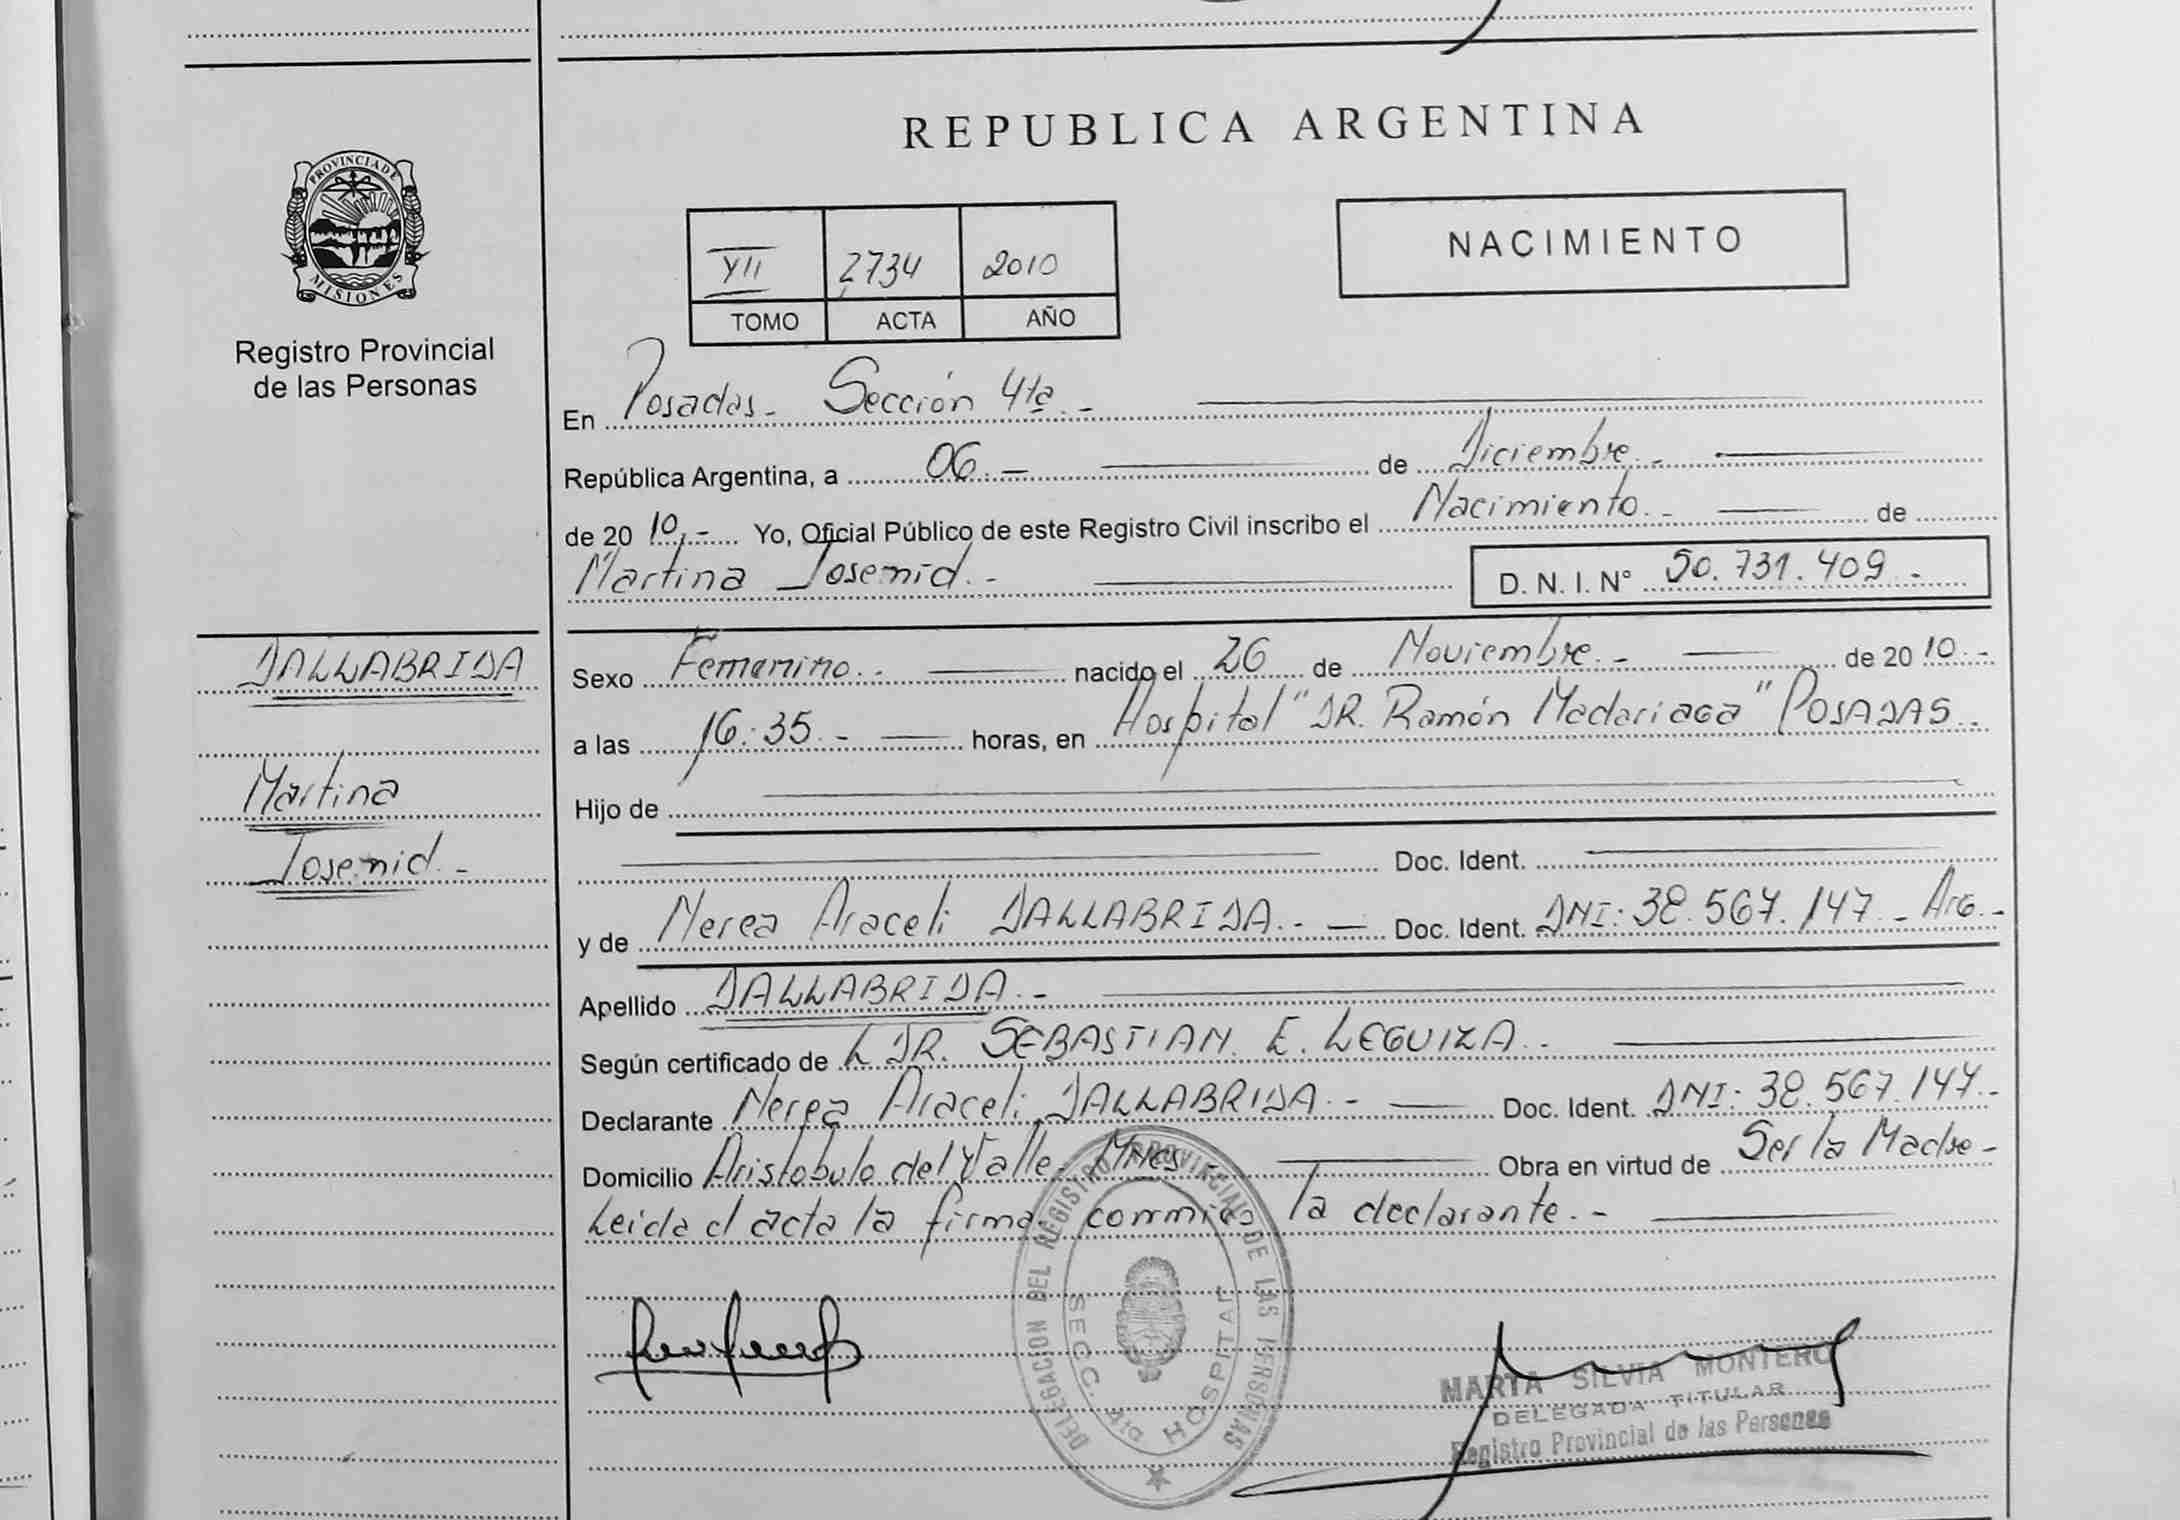 PROVINCIA DE
MISIONES
Registro Provincial
de las Personas
DALLABRIDA
Martina
Josemid.-
REPUBLICA ARGENTINA
NACIMIENTO
VII 2734 2010
TOMO ACTA AÑO
En Posadas- Sección 4ta.-
República Argentina, a 06.- de Diciembre.-
de 2010,- Yo, Oficial Público de este Registro Civil inscribo el Nacimiento.- de
Martina Josemid.- D. N. I. N° 50.731.409.-
Sexo Femenino.- nacido el 26 de Noviembre.- de 2010.-
a las 16:35.- horas, en Hospital "DR. Ramón Madariaga" POSADAS.
Hijo de
Doc. Ident.
y de Nerea Araceli DALLABRIDA.- Doc. Ident. DNI: 38.567.147.- Arg.-
Apellido DALLABRIDA.-
Según certificado de L DR. SEBASTIAN. E. LEGUIZA.-
Declarante Nerea Araceli DALLABRIDA.- Doc. Ident. DNI: 38.567.147.-
Domicilio Aristobulo del Valle. Mnes.- Obra en virtud de Ser la Madre-
Leida el acta la firma conmigo la declarante.-
DELEGACION DEL REGISTRO PROVINCIAL DE LAS PERSONAS
SECC. 4ta HOSPITAL
MARTA SILVIA MONTERO
DELEGADA TITULAR
Registro Provincial de las Personas